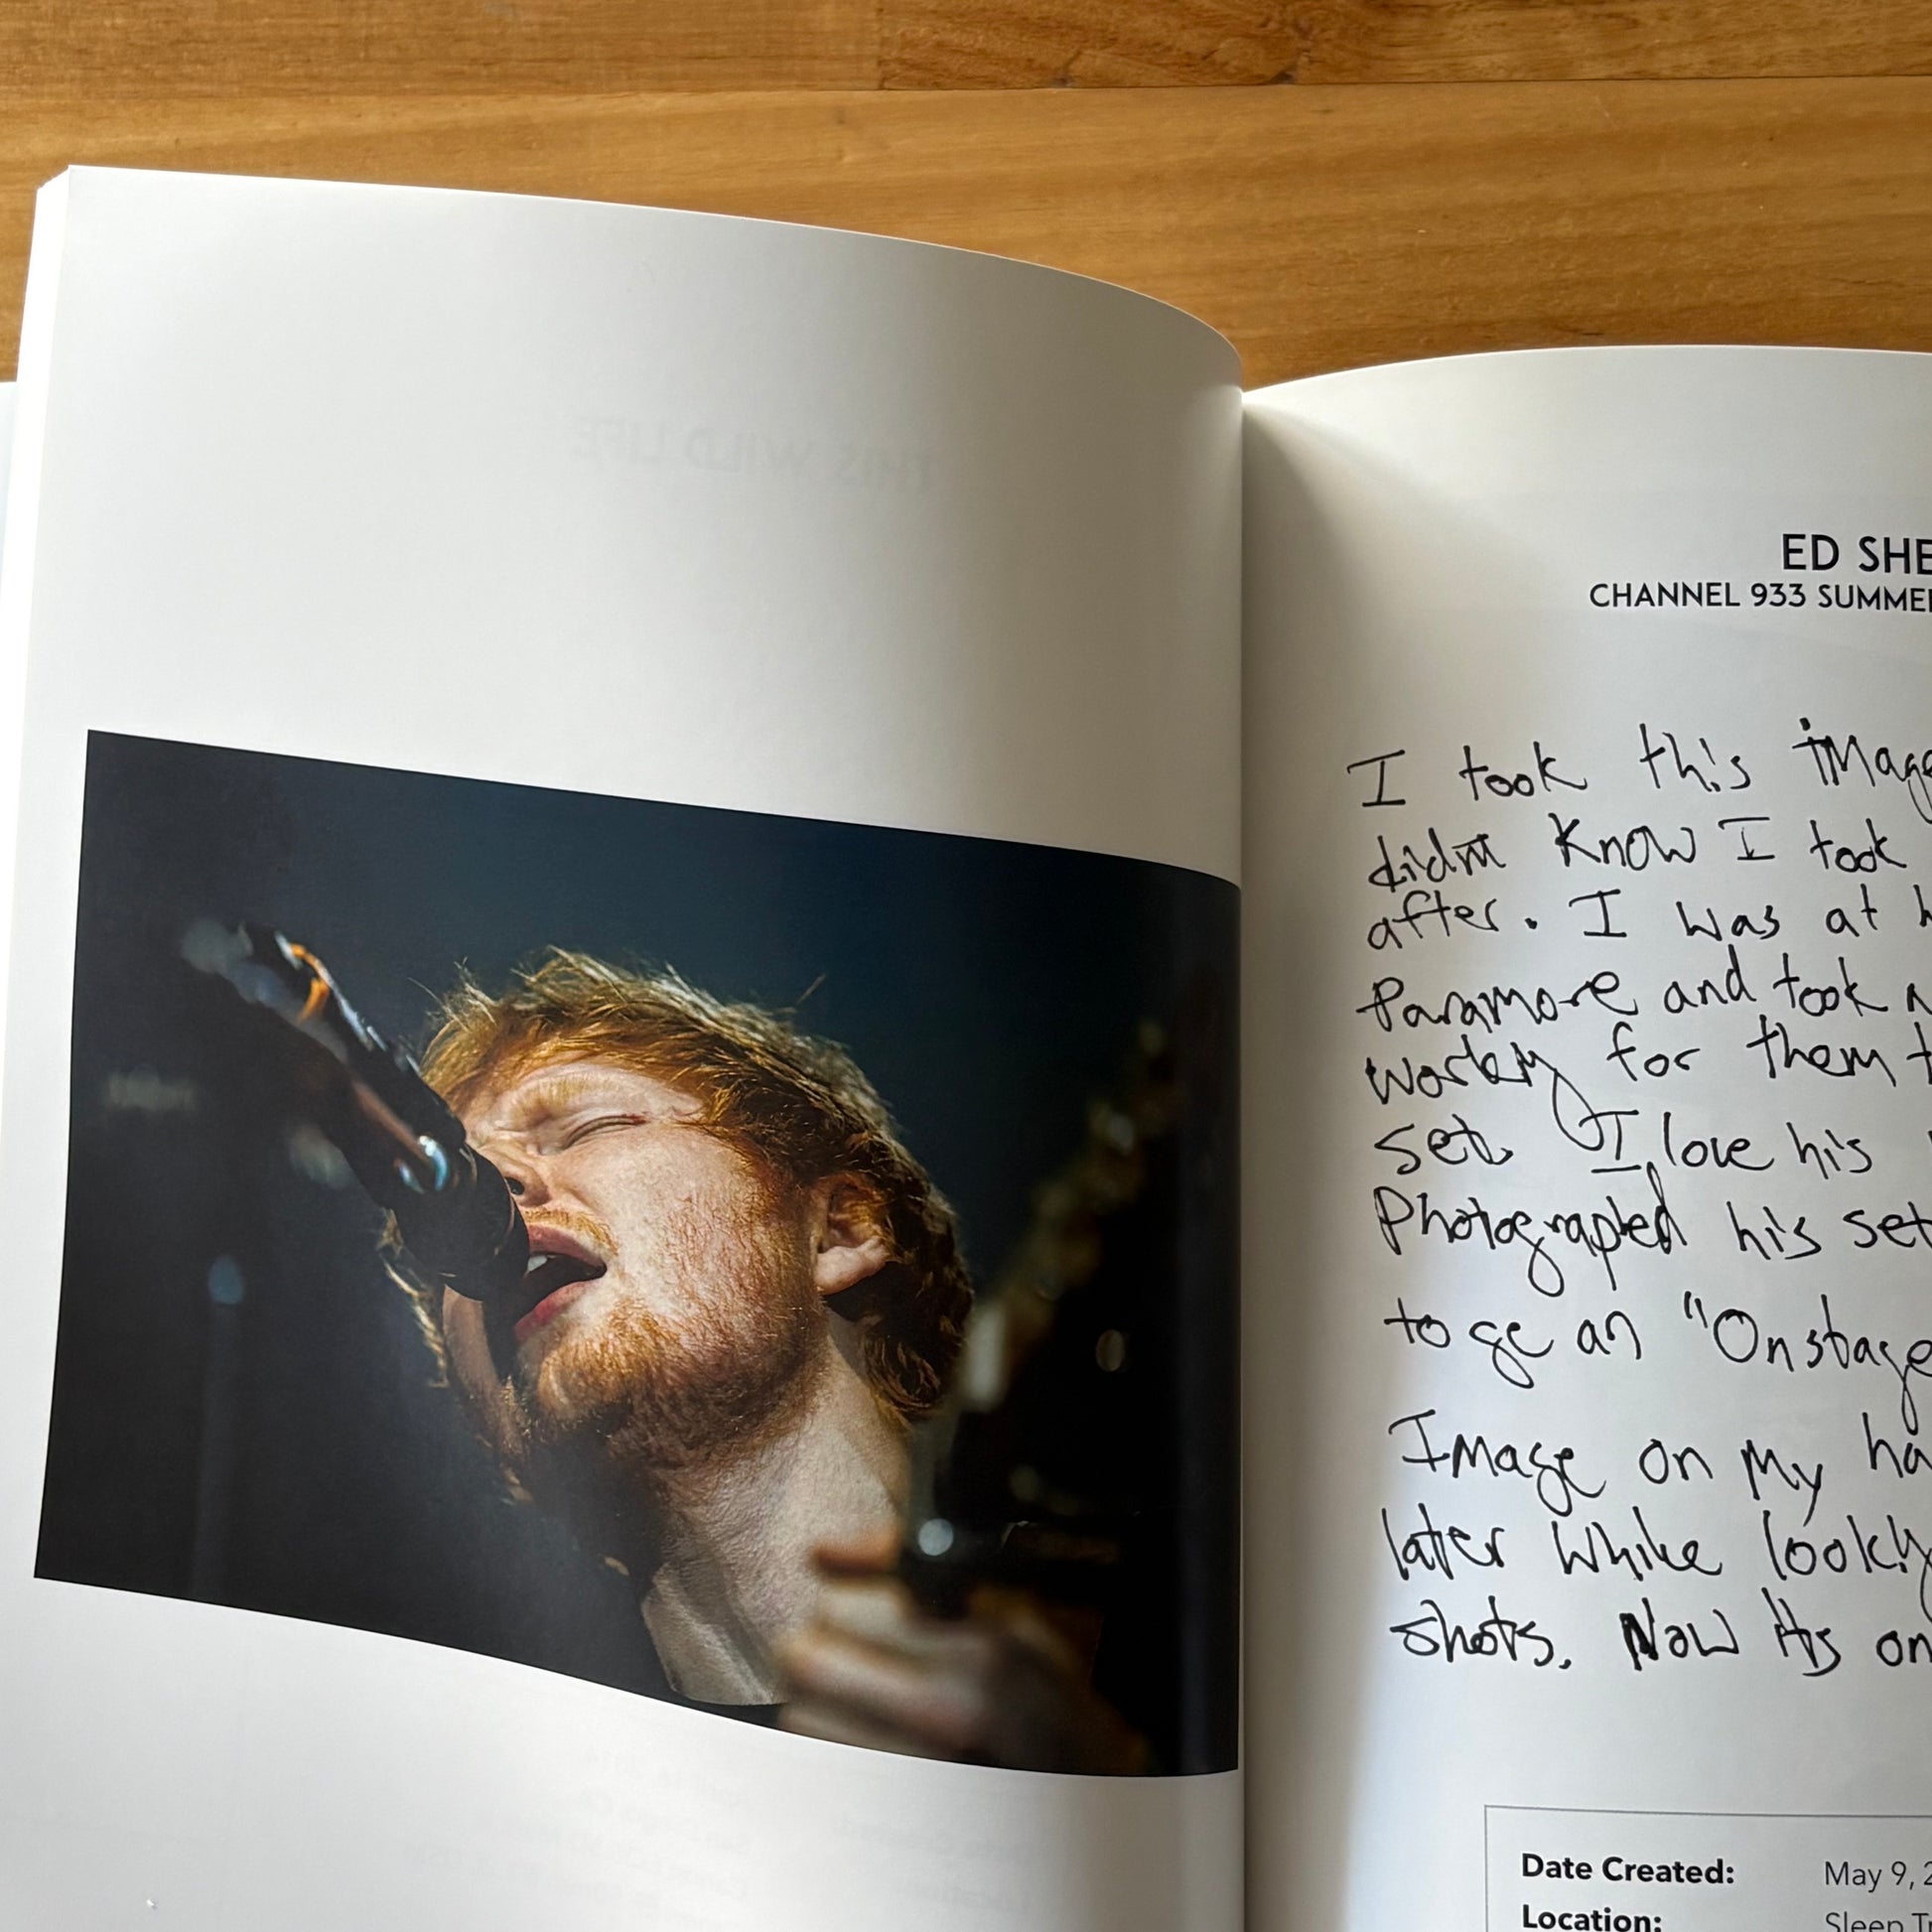 THIS WILD LIFE
ED SHE
CHANNEL 933 SUMMER
I took this image
didnt know I took
after. I was at h
Paramore and took
for them t
set. I love his
Photographed his set
to ge an "Onstage
Image on my ha
later while
shots. Now its on
Date Created: May 9, 2
Location: Sleep T